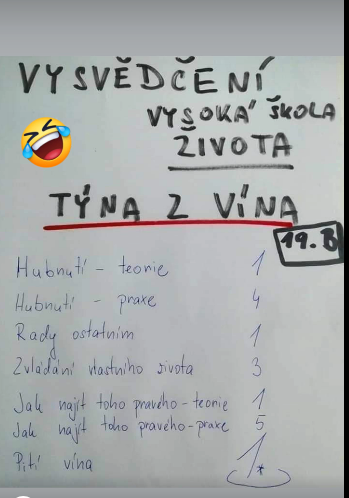 VYSVĚDČENÍ
VYSOKÁ ŠKOLA
ŽIVOTA
TÝNA Z VÍNA
19. B
Hubnutí - teorie 1
Hubnutí - praxe 4
Rady ostatním 1
Zvládání vlastního života 3
Jak najít toho pravého - teorie 1
Jak najít toho pravého - praxe 5
Pití vína 1*